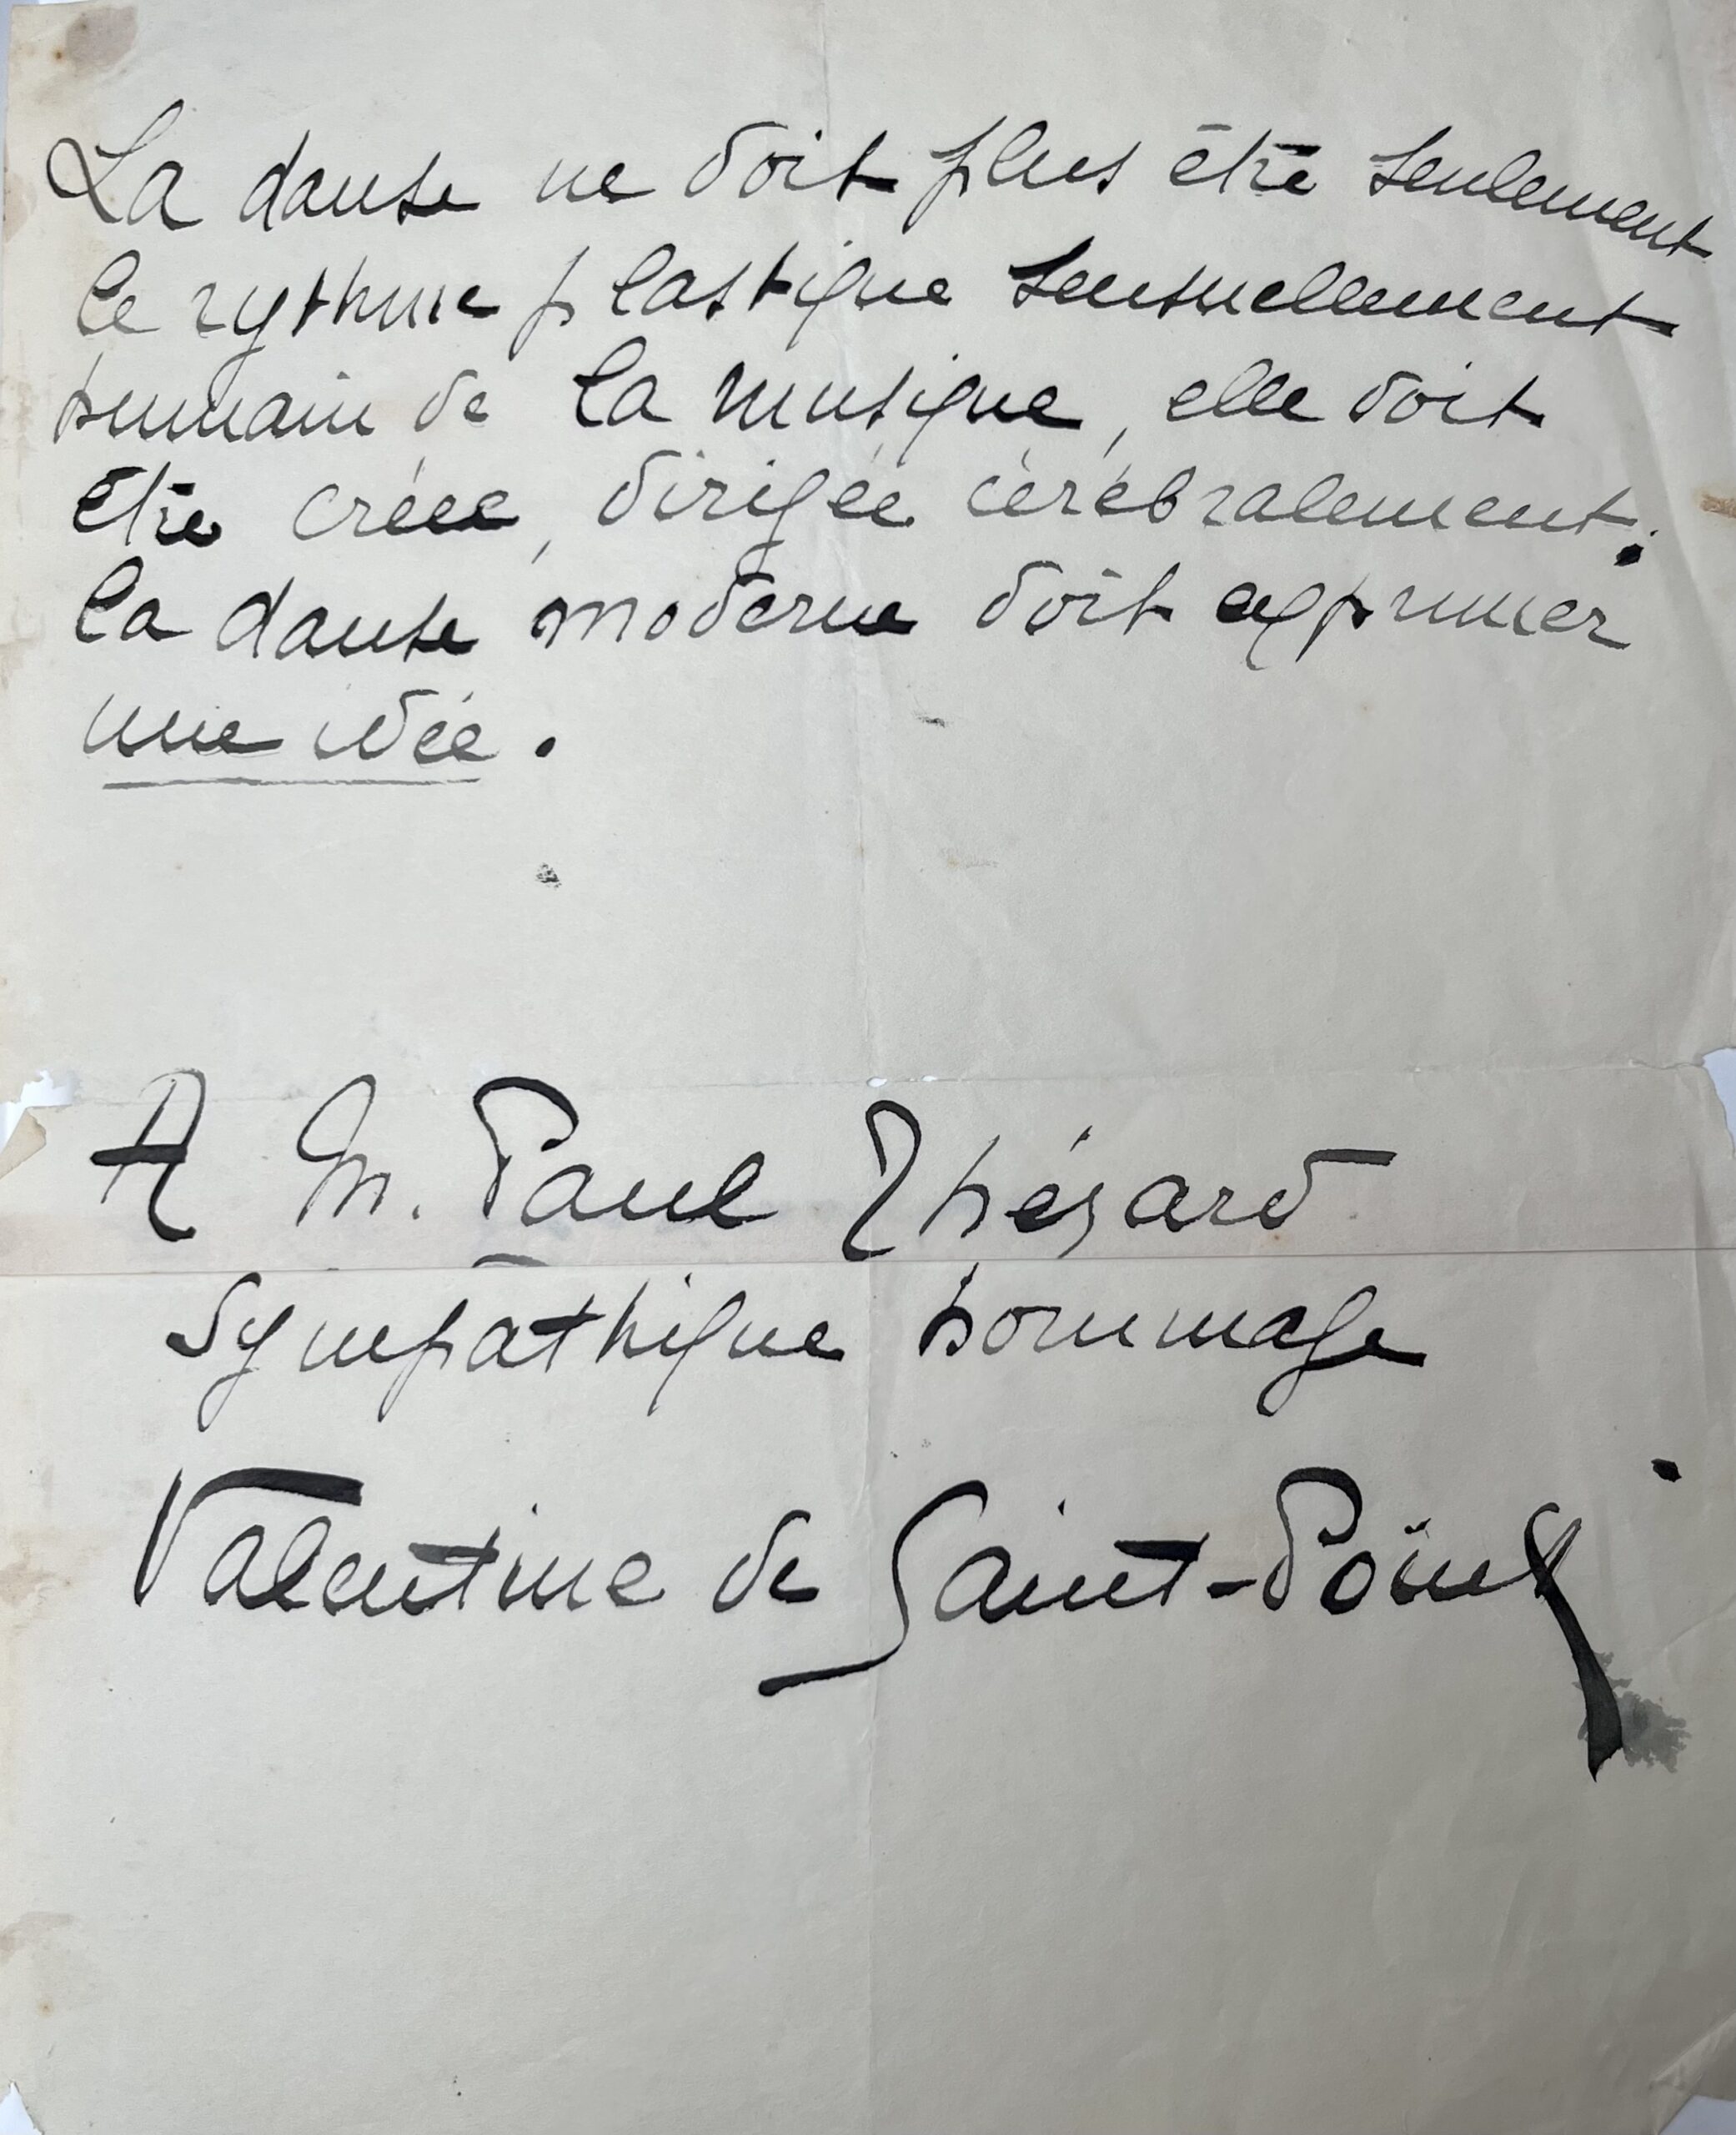 La danse ne doit plus être seulement
le rythme plastique sensuellement
humain de la musique, elle doit
être créée, dirigée cérébralement.
La danse moderne doit exprimer
une idée.
A M. Paul Thézard
sympathique hommage
Valentine de Saint-Point